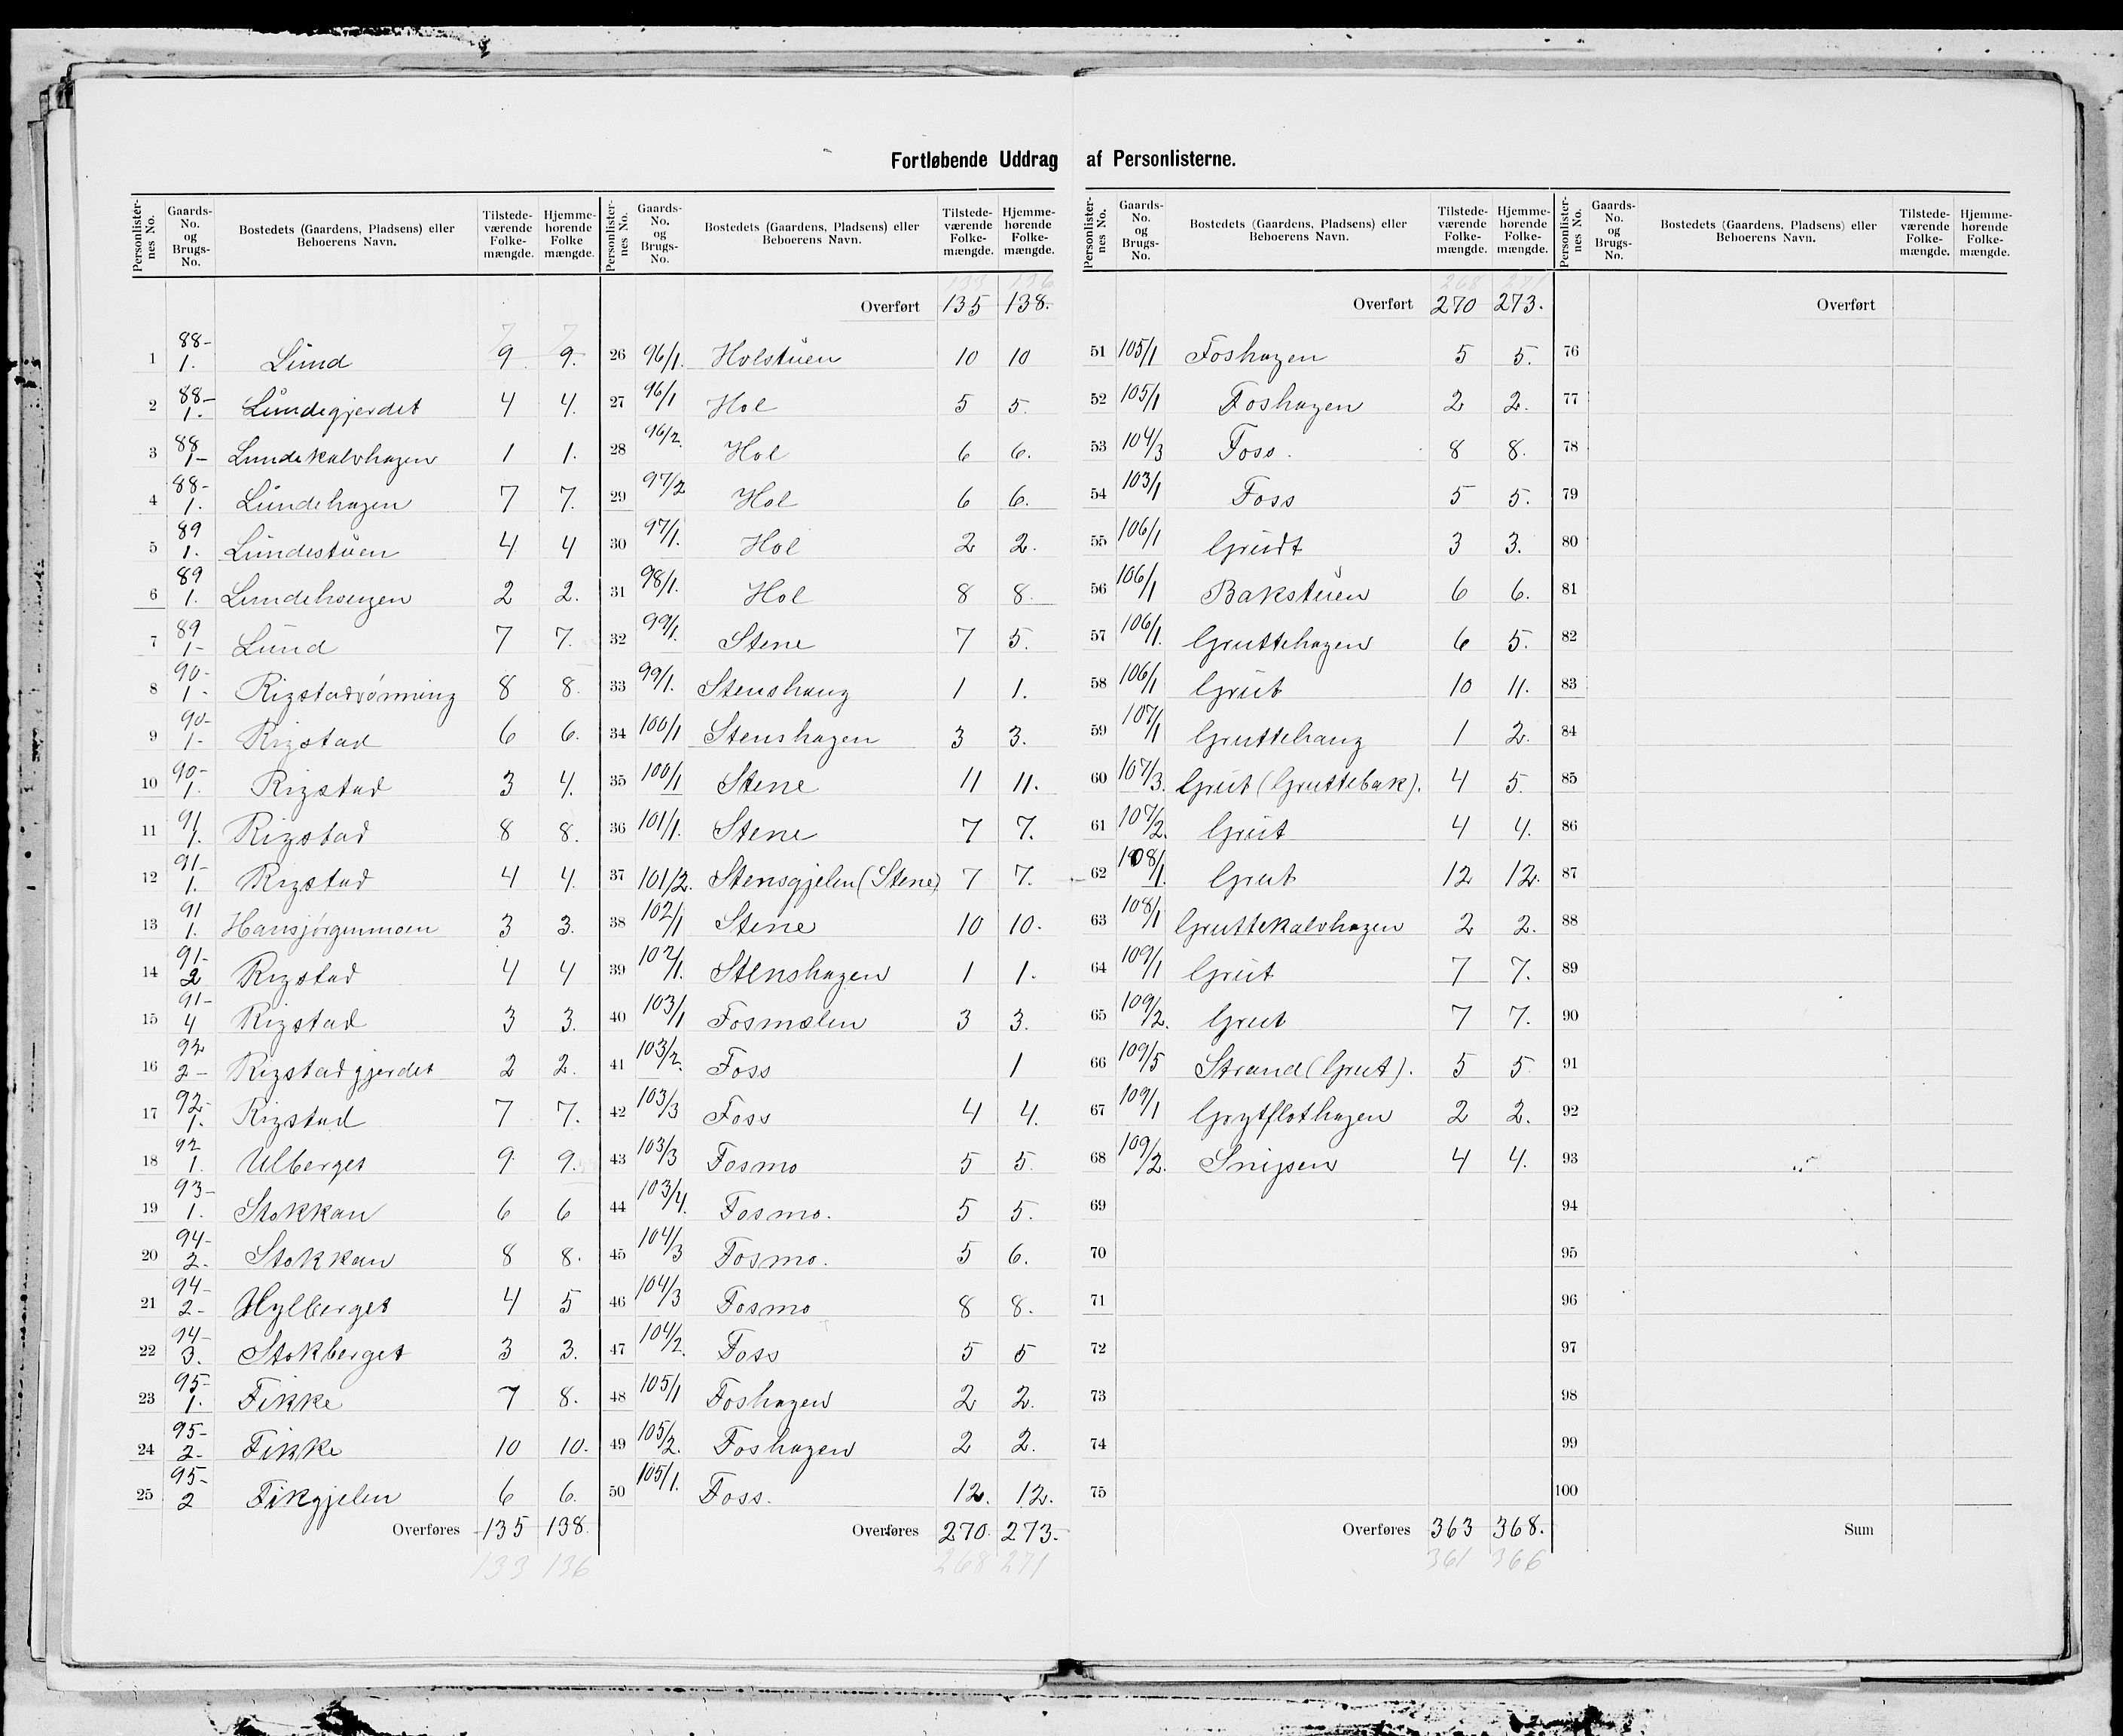 Fortløbende Uddrag af Personlisterne.
Personlisternes No. Gaards-No. og Brugs-No. Bostedets (Gaardens, Pladsens) eller Beboerens Navn. Tilstedeværende Folkemængde. Hjemmehørende Folkemængde.
1 88-1. Lund 9 9.
2 88-1. Lundegjerdet 4 4.
3 88-1 Lundekalvhagen 1 1.
4 88-1. Lundehagen 7 7.
5 89 1. Lundestuen 4 4
6 89 1. Lundehaugen 2 2.
7 89 1- Lund 7 7.
8 90-1- Rigstadrønning 8 8.
9 90-1- Rigstad 6 6.
10 90-1. Rigstad 3 4.
11 91 1. Rigstad 8 8.
12 91-1. Rigstad 4 4.
13 91 1. Hansjørgenmoen 3 3.
14 91-2 Rigstad 4 4
15 91-4 Rigstad 3 3.
16 92 2- Rigstadgjerdet 2 2.
17 92-1. Rigstad 7 7.
18 92 1. Ulberget 9 9.
19 93-1. Stokkan 6 6
20 94-2. Stokkan 8 8.
21 94-2- Hylberget 4 5
22 94-3. Stokberget 3 3.
23 95-1. Fikke 7 8.
24 95-2- Fikke 10 10.
25 95-2 Fikgjelen 6 6.
Overføres 135 138.
133 136
Personlisternes No. Gaards-No. og Brugs-No. Bostedets (Gaardens, Pladsens) eller Beboerens Navn. Tilstedeværende Folkemængde. Hjemmehørende Folkemængde.
133 136
Overført 135 138.
26 96/1. Holstuen 10 10
27 96/1 Hol 5 5.
28 96/2. Hol 6 6.
29 97/2 Hol 6 6.
30 97/1. Hol 2 2.
31 98/1. Hol 8 8.
32 99/1. Stene 7 5.
33 99/1. Stenshaug 1 1.
34 100/1 Stenshagen 3 3.
35 100/1 Stene 11 11.
36 101/1. Stene 7 7.
37 101/2. Stensgjelen (Stene) 7 7.
38 102/1 Stene 10 10.
39 102/1. Stenshagen 1 1.
40 103/1 Fosmælen 3 3.
41 103/2. Foss 1
42 103/3 Foss 4 4.
43 103/3 Fosmo 5 5.
44 103/4. Fosmo. 5 5.
45 104/3 Fosmo. 5 6.
46 104/3 Fosmo 8 8.
47 104/2. Foss 5 5
48 105/1 Foshagen 2 2.
49 105/2. Foshagen 2 2.
50 105/1. Foss. 12. 12.
Overføres 270. 273.
268 271
Personlisternes No. Gaards-No. og Brugs-No. Bostedets (Gaardens, Pladsens) eller Beboerens Navn. Tilstedeværende Folkemængde. Hjemmehørende Folkemængde.
268 271
Overført 270 273.
51 105/1 Foshagen 5 5.
52 105/1 Foshagen 2 2.
53 104/3 Foss. 8 8.
54 103/1 Foss 5 5.
55 106/1 Grudt 3 3.
56 106/1 Bakstuen 6 6.
57 106/1. Gruttehagen 6 5.
58 106/1 Grut 10 11.
59 107/1 Gruttehaug 1 2.
60 107/3. Grut (Gruttebak). 4 5.
61 107/2. Grut 4 4.
62 108/1. Grut 12 12.
63 108/1 Gruttekalvhagen 2 2.
64 109/1 Grut 7 7.
65 109/2. Grut 7 7.
66 109/5 Strand (Grut). 5 5
67 109/1 Grytflothagen 2 2.
68 109/2. Snipsen 4 4.
69
70
71
72
73
74
75
Overføres 363 368.
361 366
Personlisternes No. Gaards-No. og Brugs-No. Bostedets (Gaardens, Pladsens) eller Beboerens Navn. Tilstedeværende Folkemængde. Hjemmehørende Folkemængde.
Overført
76
77
78
79
80
81
82
83
84
85
86
87
88
89
90
91
92
93
94
95
96
97
98
99
100
Sum